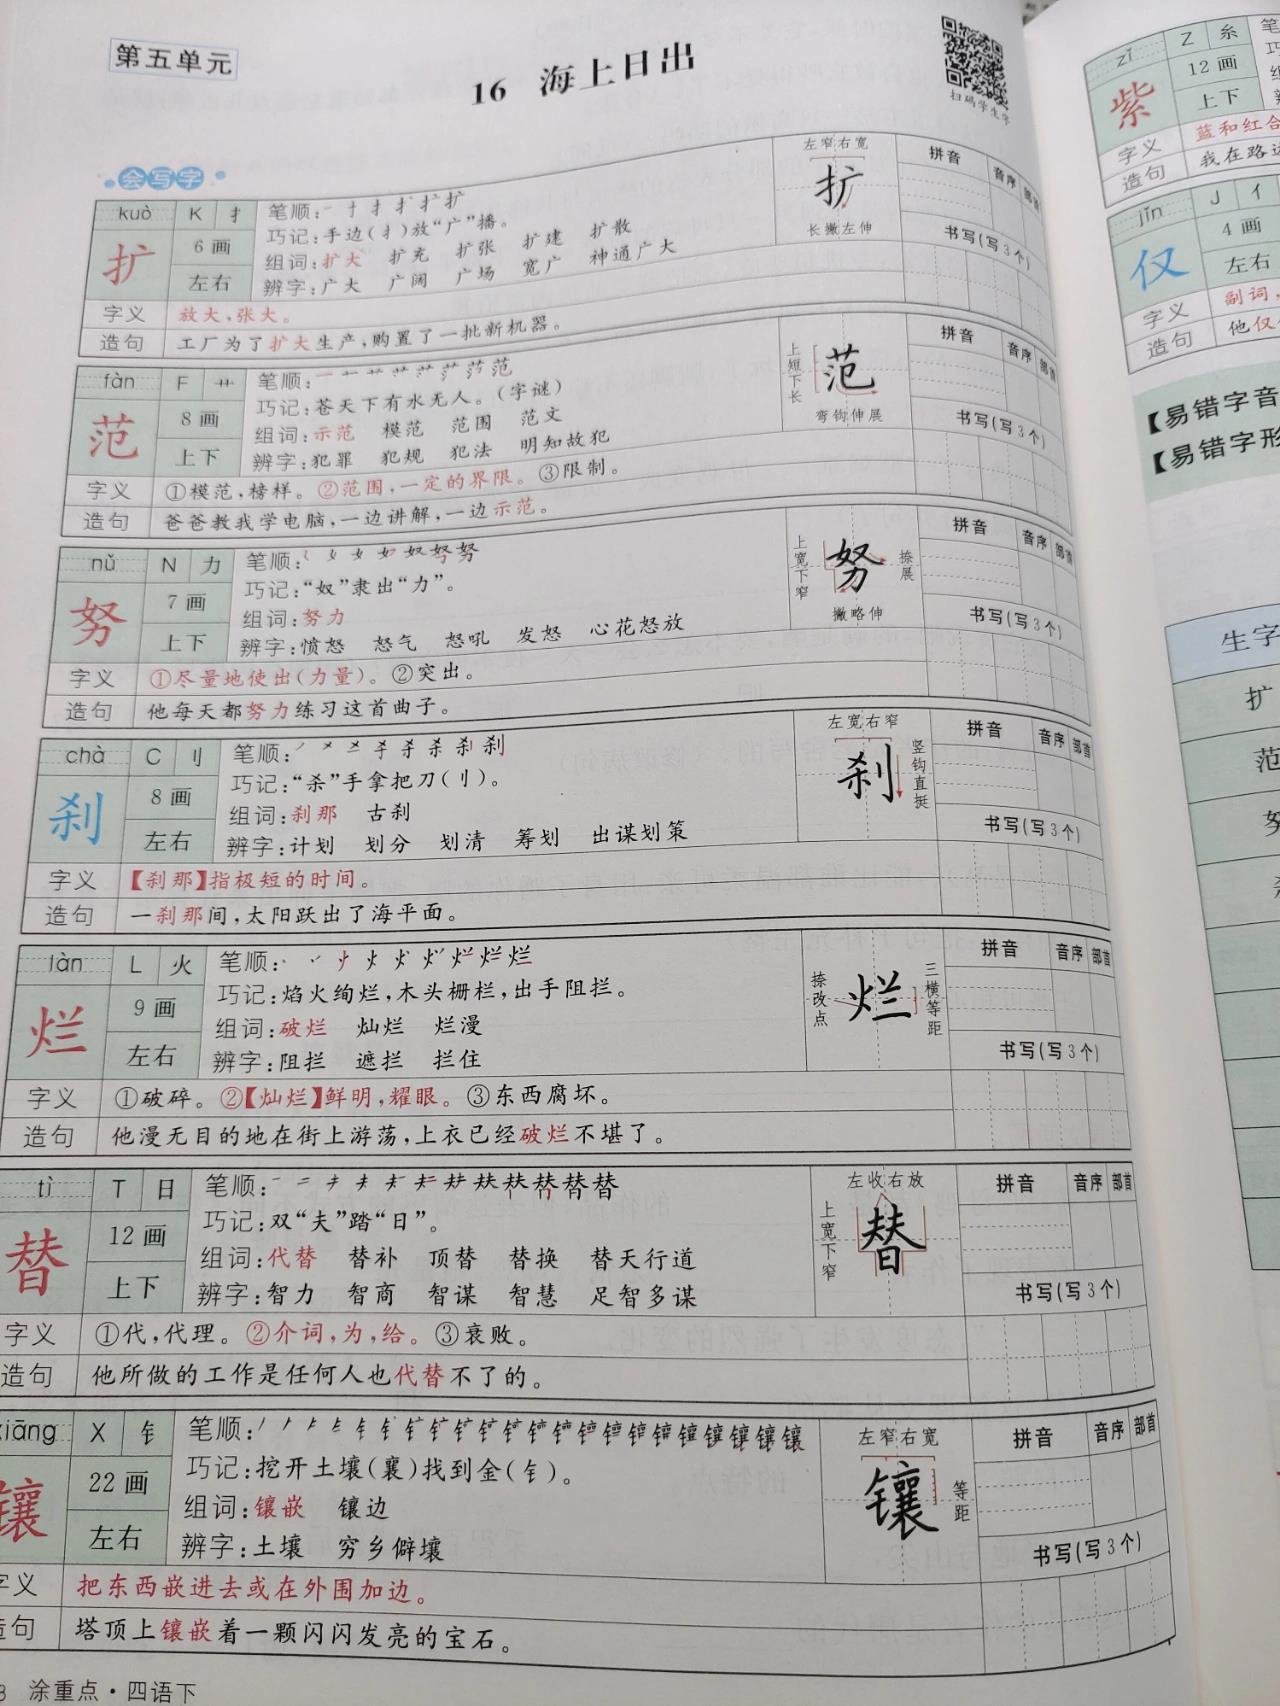 第五单元
16 海上日出
扫码学生字
会写字
kuò K 扌
扩
6画
左右
笔顺:
巧记:手边(扌)放“广”播。
组词:扩大 扩充 扩张 扩建 扩散
辨字:广大 广阔 广场 宽广 神通广大
左窄右宽
扩
长撇左伸
拼音 音序 部首
书写(写3个)
字义 放大,张大。
造句 工厂为了扩大生产,购置了一批新机器。
fàn F 艹
范
8画
上下
笔顺:
巧记:苍天下有水无人。(字谜)
组词:示范 模范 范围 范文
辨字:犯罪 犯规 犯法 明知故犯
上短下长
范
弯钩伸展
拼音 音序 部首
书写(写3个)
字义 ①模范,榜样。②范围,一定的界限。③限制。
造句 爸爸教我学电脑,一边讲解,一边示范。
nǔ N 力
努
7画
上下
笔顺:
巧记:“奴”隶出“力”。
组词:努力
辨字:愤怒 怒气 怒吼 发怒 心花怒放
上宽下窄
努
捺展
撇略伸
拼音 音序 部首
书写(写3个)
字义 ①尽量地使出(力量)。②突出。
造句 他每天都努力练习这首曲子。
chà C 刂
刹
8画
左右
笔顺:
巧记:“杀”手拿把刀(刂)。
组词:刹那 古刹
辨字:计划 划分 划清 筹划 出谋划策
左宽右窄
刹
竖钩直挺
拼音 音序 部首
书写(写3个)
字义 【刹那】指极短的时间。
造句 一刹那间,太阳跃出了海平面。
làn L 火
烂
9画
左右
笔顺:
巧记:焰火绚烂,木头栅栏,出手阻拦。
组词:破烂 灿烂 烂漫
辨字:阻拦 遮拦 拦住
捺改点
烂
三横等距
拼音 音序 部首
书写(写3个)
字义 ①破碎。②【灿烂】鲜明,耀眼。③东西腐坏。
造句 他漫无目的地在街上游荡,上衣已经破烂不堪了。
tì T 日
替
12画
上下
笔顺:
巧记:双“夫”踏“日”。
组词:代替 替补 顶替 替换 替天行道
辨字:智力 智商 智谋 智慧 足智多谋
左收右放
上宽下窄
替
拼音 音序 部首
书写(写3个)
字义 ①代,代理。②介词,为,给。③衰败。
造句 他所做的工作是任何人也代替不了的。
xiāng X 钅
镶
22画
左右
笔顺:
巧记:挖开土壤(襄)找到金(钅)。
组词:镶嵌 镶边
辨字:土壤 穷乡僻壤
左窄右宽
镶
等距
拼音 音序 部首
书写(写3个)
字义 把东西嵌进去或在外围加边。
造句 塔顶上镶嵌着一颗闪闪发亮的宝石。
涂重点·四语下
zǐ Z 糸
紫
12画
上下
字义 蓝和红合
造句 我在路边
jǐn J 亻
仅
4画
左右
字义 副词,
造句 他仅
【易错字音
【易错字形
生字
扩
范